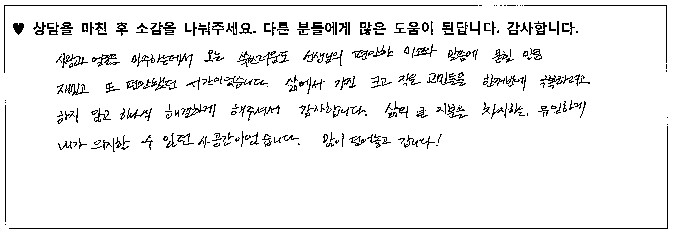 ♥ 상담을 마친 후 소감을 나눠주세요. 다른 분들에게 많은 도움이 된답니다. 감사합니다.
사람과 얼굴을 마주하는데서 오는 쑥쓰러움도 선생님의 편안한 미소와 말씀에 금방
재밌고 또 편안했던 시간이었습니다. 삶에서 가진 크고 작은 고민들을 한꺼번에 극복하려고
하지 않고 하나씩 해결하게 해주셔서 감사합니다. 삶의 큰 지분을 차지하는, 유일하게
내가 의지할 수 있던 시공간이었습니다. 많이 덜어놓고 갑니다!